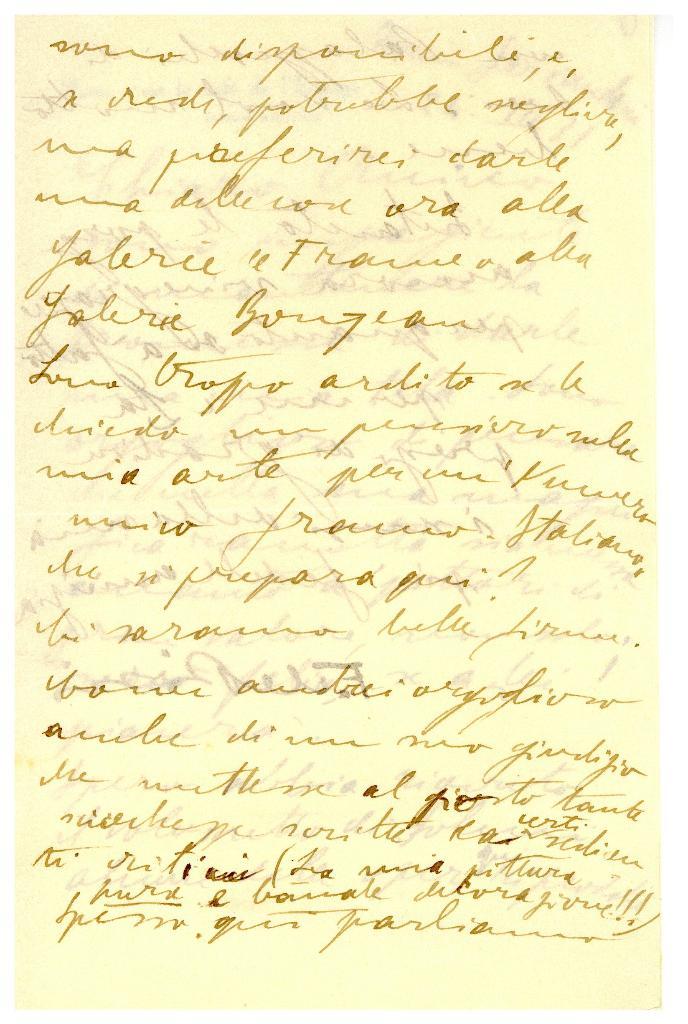 sono disponibili, e,
se crede, potrebbe scegliere,
ma preferirei darle
una delle cose ora alla
Galerie de France o alla
Galerie Bonjean
Sono troppo ardito se le
chiedo un pensiero sulla
mia arte per un' Numero
unico franco-Italiano,
che si prepara qui?
Vi saranno belle firme.
andrei orgoglioso
anche di un suo giudizio
che mettesse al giusto tante
sciocchezze scritte da certi sedicen
ti critici (La mia pittura
pura e banale decorazione!!!)
Spesso qui parliamo